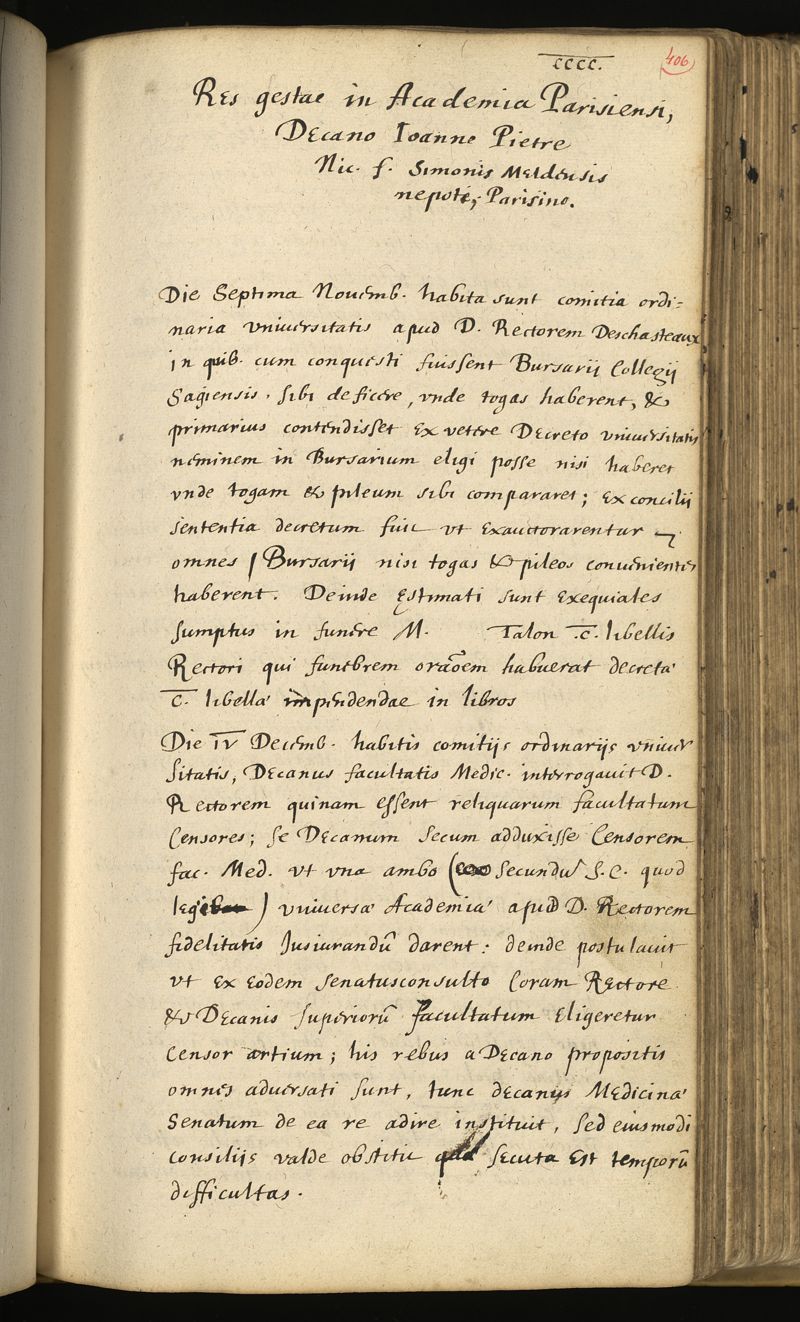 cccc.
406
Res gestae in Academia Parisiensi,
Decano Ioanne Pietre
Nic. f. Simonis Meldensis
nepote, Parisino.
Die Septima Nouemb. habita sunt comitia ordi=
naria vniuersitatis apud D. Rectorem Deschasteaux
in quib. cum conquesti fuissent Bursarij Collegij
Sagiensis, sibi deficere, vnde togas haberent, &
primarius contendisset ex vetere Decreto vniuersitatis
neminem in Bursarium eligi posse nisi haberet
vnde togam & pileum sibi compararet; ex concilij
sententia decretum fuit vt exauctorarentur
omnes Bursarij nisi togas & pileos conuenientes
haberent. Deinde Estimati sunt exequiales
sumptus in funere M. Talon .c. libellis
Rectori qui funebrem oraõem habuerat decreta
C. libella impendendae in libros
Die IV Decemb. habitis comitijs ordinarijs vniuer
sitatis, Decanus facultatis Medic. interrogauit D.
Rectorem quinam essent reliquarum facultatum
Censores; se Decanum secum adduxisse Censorem
fac. Med. vt vna ambo ( secundũ S.C. quod
) vniuersa Academia apud D. Rectorem
fidelitatis Jusiurandũ darent: deinde postulauit
vt ex eodem senatusconsulto Coram Rectore
& Decanis superiorũ facultatum eligeretur
Censor artium; his rebus a Decano propositis
omnes aduersati sunt, tunc decanus Medicina
Senatum de ea re adire instituit, sed eiusmodi
consilijs valde obstitit secuta est temporũ
difficultas.